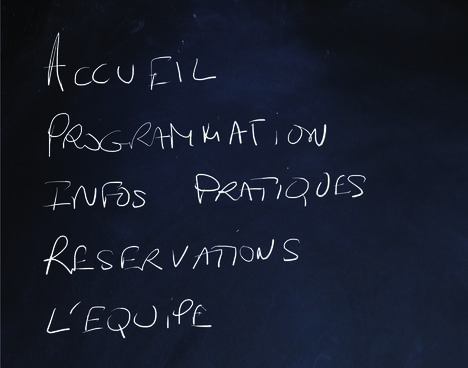 ACCUEIL
PROGRAMMATION
INFOS PRATIQUES
RESERVATIONS
L'EQUIPE